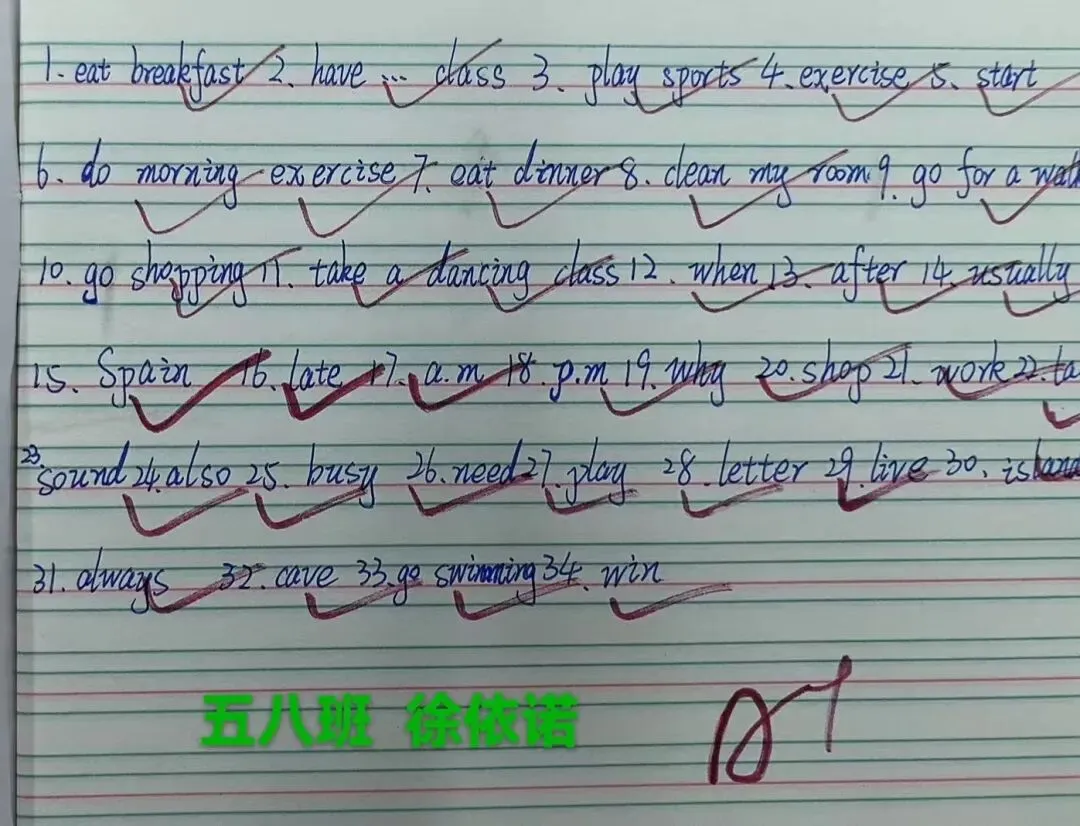 1. eat breakfast 2. have ... class 3. play sports 4. exercise 5. start
6. do morning exercise 7. eat dinner 8. clean my room 9. go for a walk
10. go shopping 11. take a dancing class 12. when 13. after 14. usually
15. Spain 16. late 17. a.m 18. p.m 19. why 20. shop 21. work 22.
23. sound 24. also 25. busy 26. need 27. play 28. letter 29. live 30. island
31. always 32. cave 33. go swimming 34. win
五八班 徐依诺